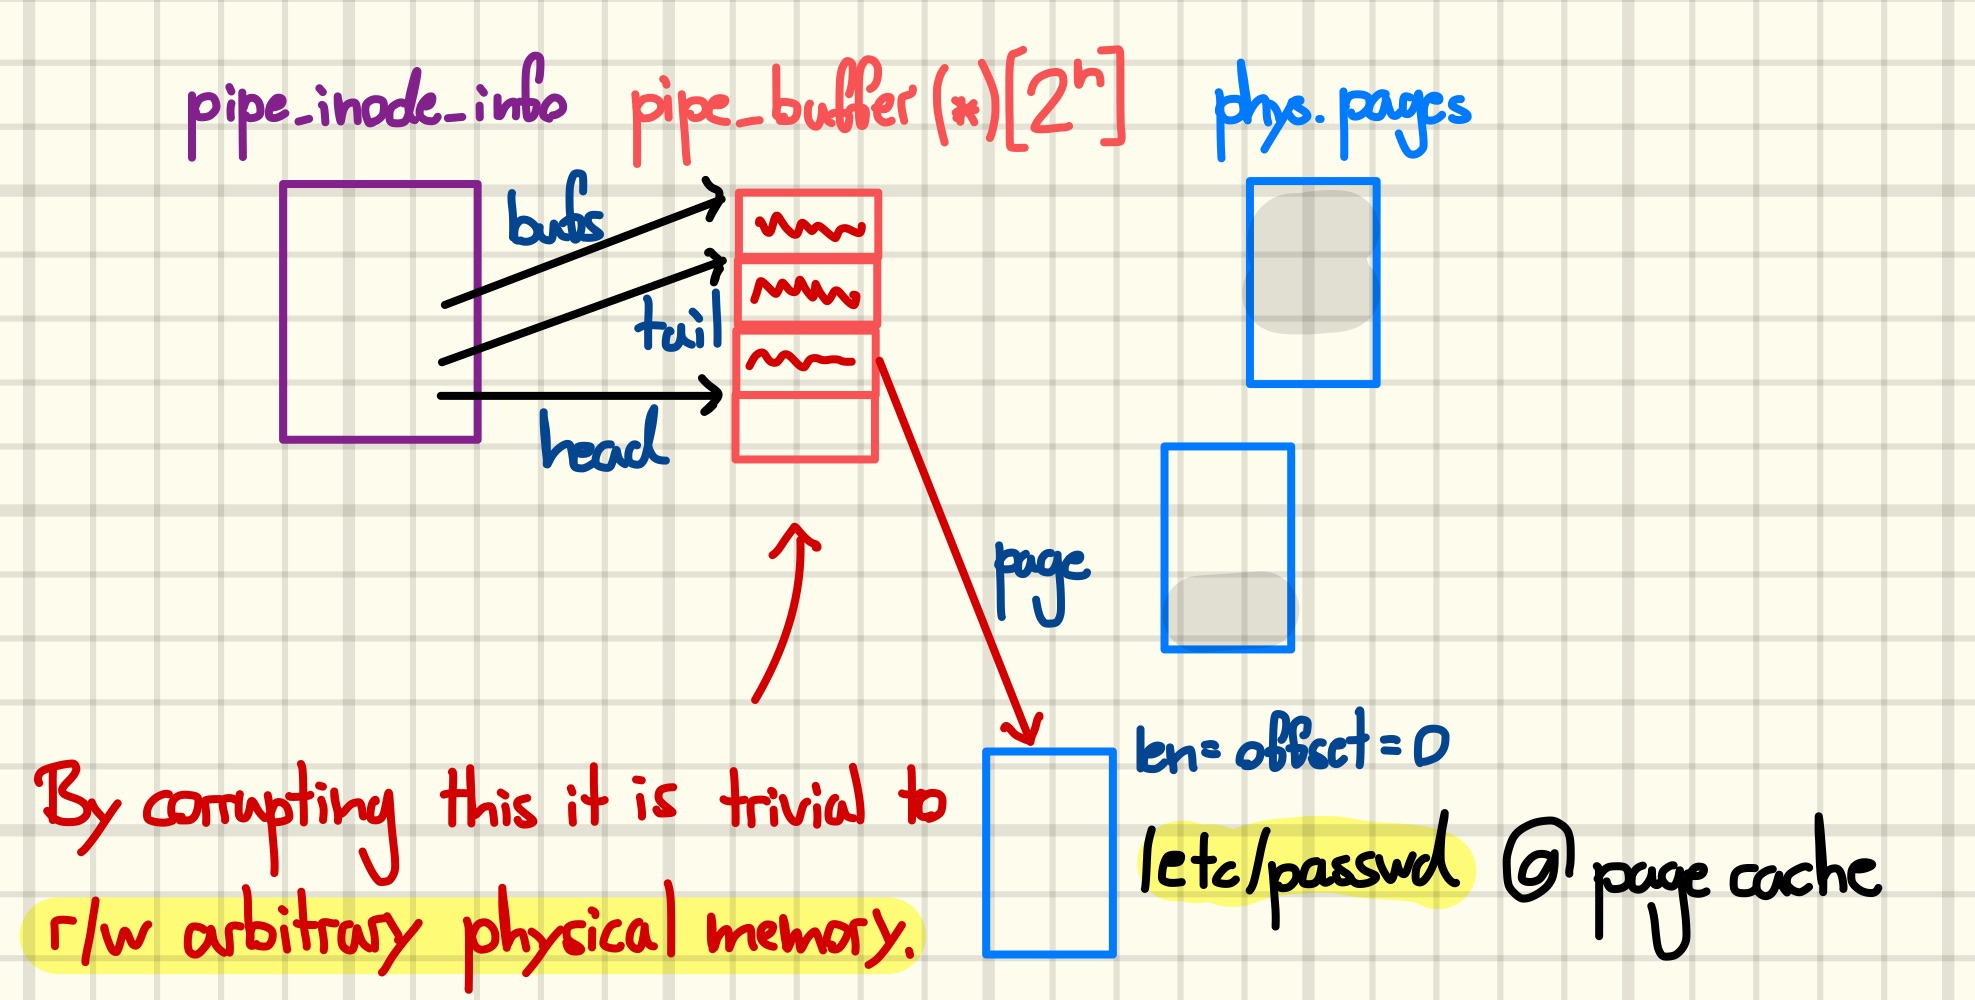 pipe_inode_info
pipe_buffer (*)[2ⁿ]
phys. pages
bufs
tail
head
page
len = offset = 0
/etc/passwd @ page cache
By corrupting this it is trivial to
r/w arbitrary physical memory.